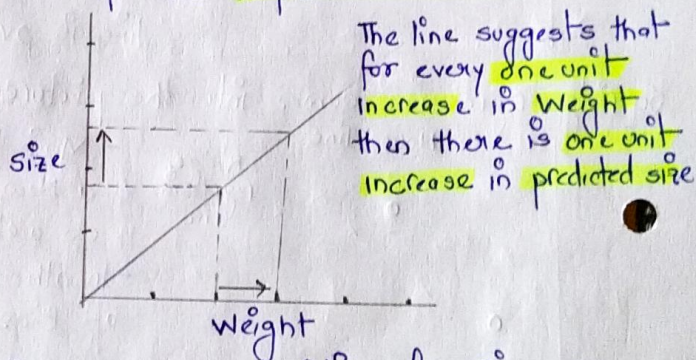 The line suggests that
for every one unit
increase in weight
then there is one unit
increase in predicted size
size
weight